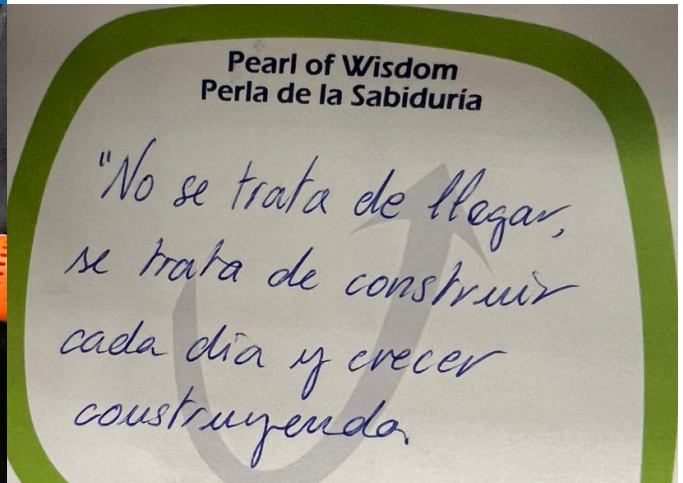 Pearl of Wisdom
Perla de la Sabiduría
"No se trata de llegar,
se trata de construir
cada día y crecer
construyendo